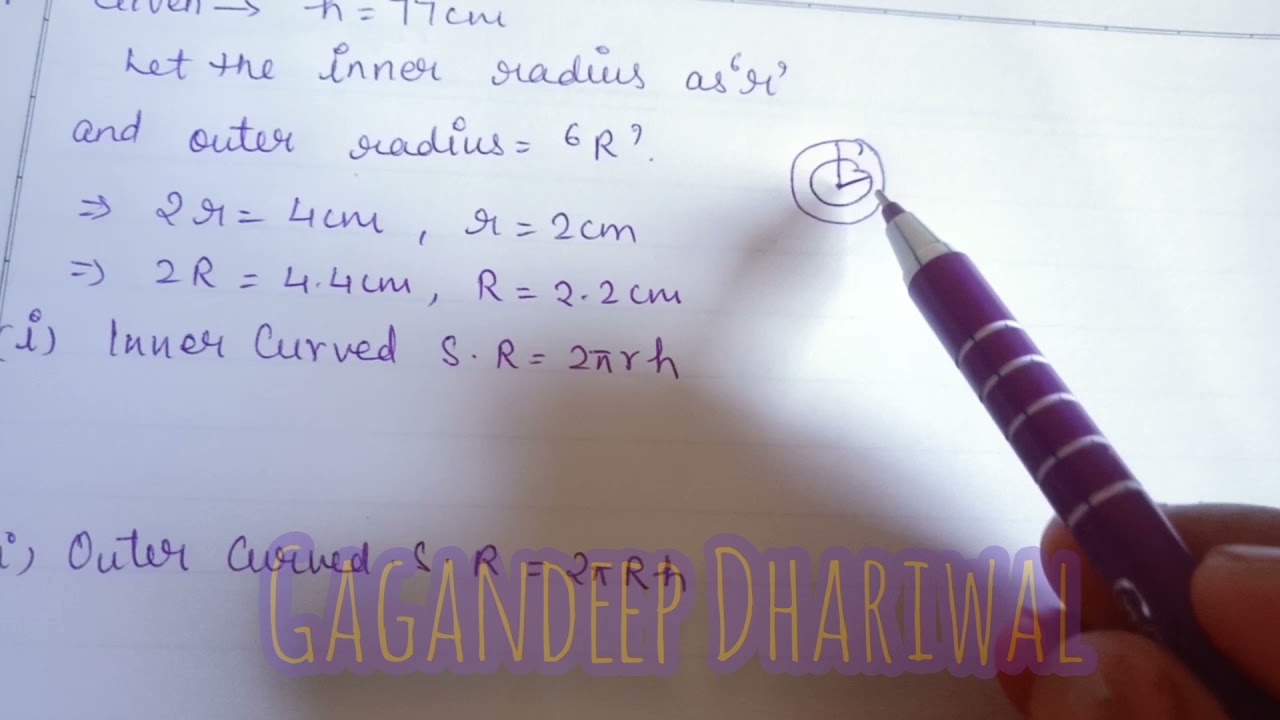 Given → h = 77cm
Let the inner radius as 'r'
and outer radius = 'R'.
⇒ 2r = 4cm , r = 2cm
⇒ 2R = 4.4cm , R = 2.2cm
(i) Inner Curved S.R = 2πrh
i) Outer Curved S.R = 2πRh
GAGANDEEP DHARIWAL